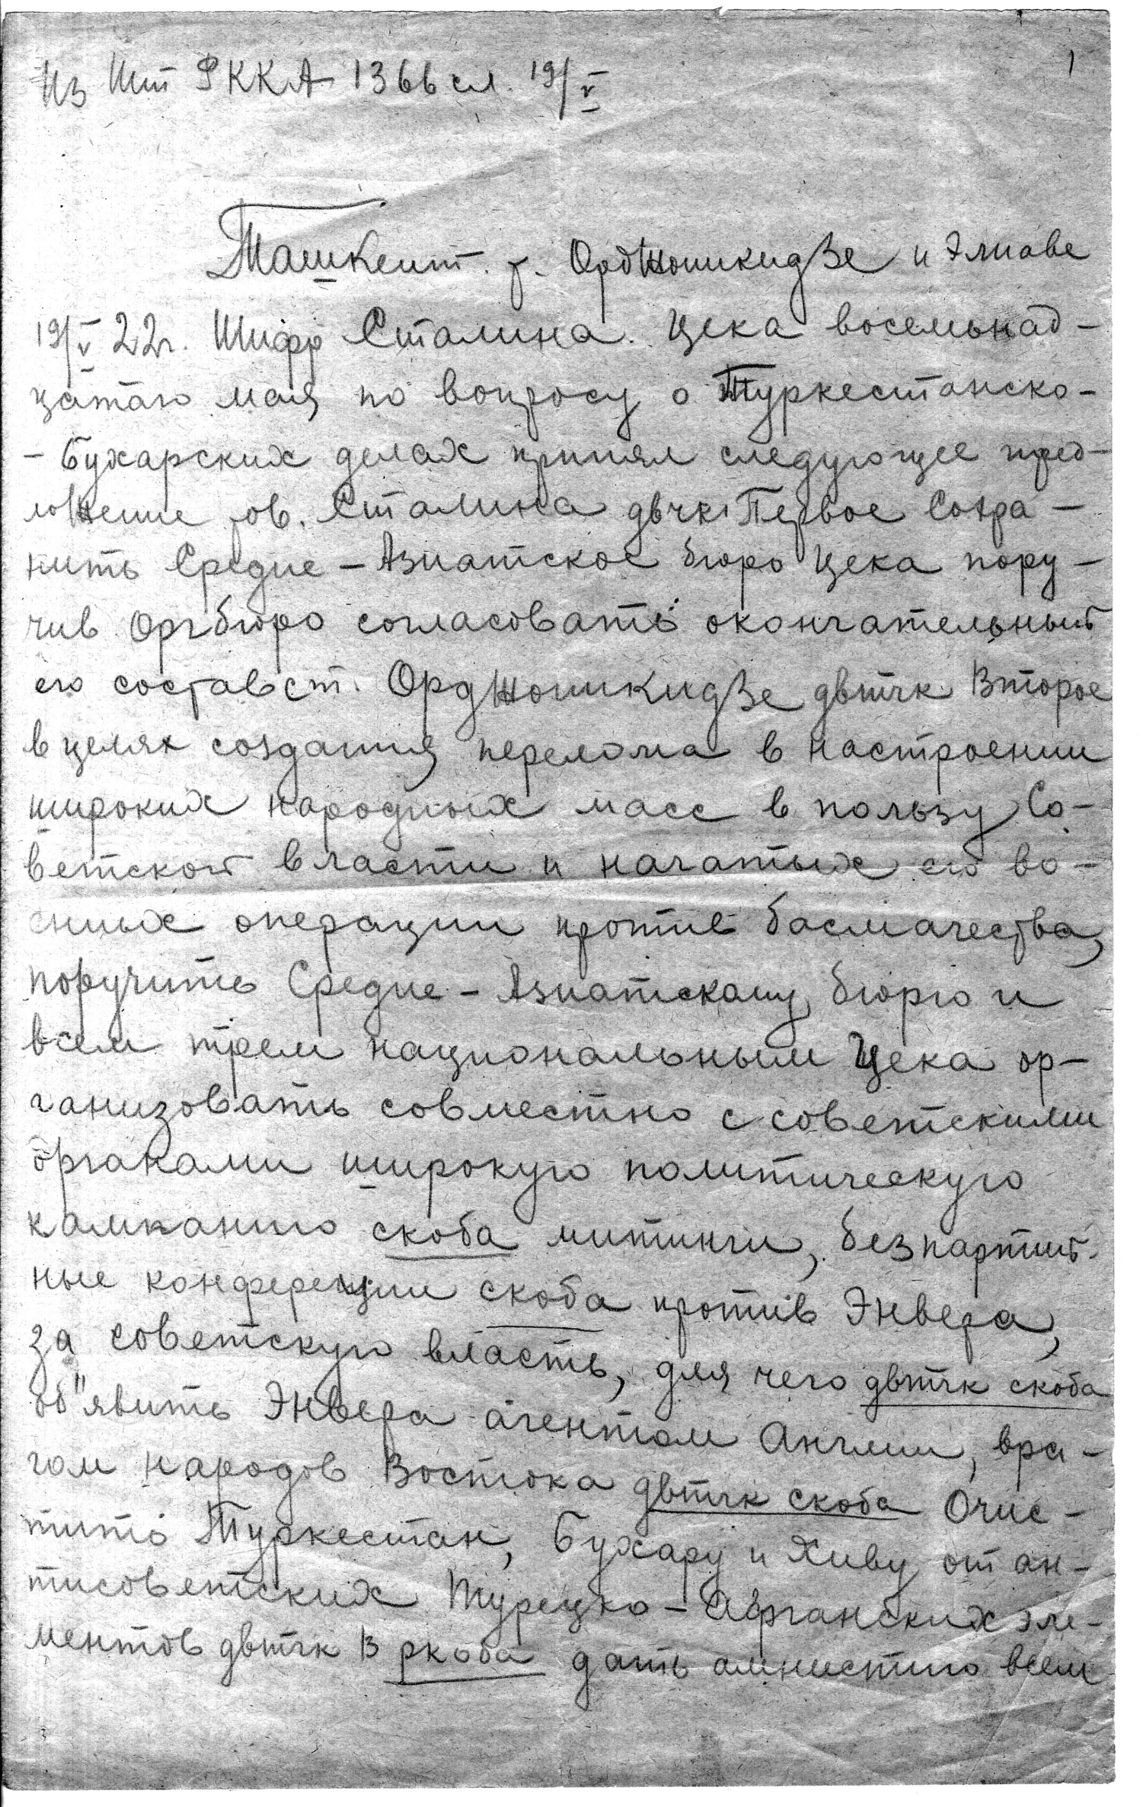 1
Из Шт РККА 1366 сл. 19/V
Ташкент. т. Орджоникидзе и Элиаве
19/V 22г. Шифр Сталина. Цека восемьнад-
цатаго мая по вопросу о Туркестанско-
-Бухарских делах принял следующее пред-
ложение тов. Сталина двчк Первое Сохра-
нить Средне-Азиатское бюро Цека пору-
чив Оргбюро согласовать окончательный
его состав с т. Орджоникидзе двтчк Второе
в целях создания перелома в настроении
широких народных масс в пользу Со-
ветской власти и начатых ею во-
енных операции против басмачества,
поручить Средне-Азиатскому бюро и
всем трем национальным Цека ор-
ганизовать совместно с советскими
органами широкую политическую
кампанию скоба митинги, безпартий-
ные конференции скоба против Энвера,
за советскую власть, для чего двтчк скоба
об"явить Энвера агентом Англии, вра-
гом народов Востока двтчк скоба Очис-
тить Туркестан, Бухару и Хиву от ан-
тисоветских Турецко-Афганских эле-
ментов двтчк В скоба дать амнистию всем